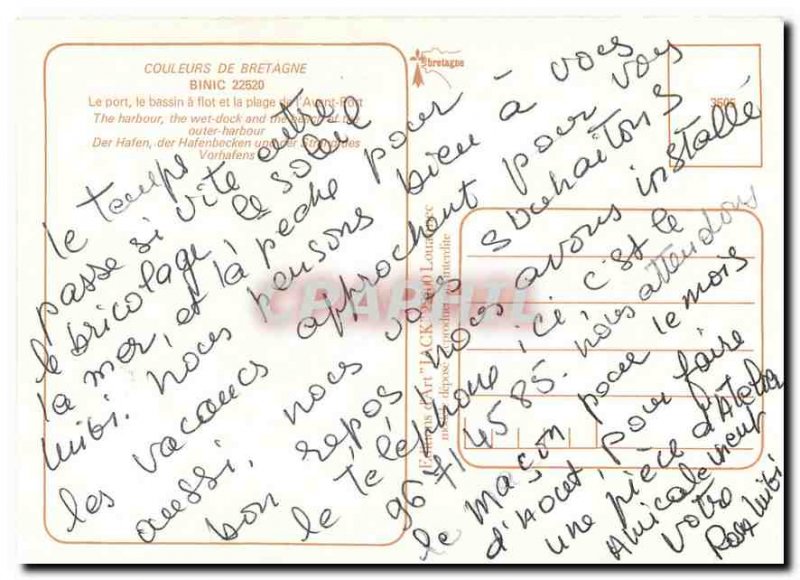 COULEURS DE BRETAGNE
BINIC 22520
Le port, le bassin à flot et la plage de l'Avant-Port
The harbour, the wet-dock and the beach of the
outer-harbour
Der Hafen, der Hafenbecken und der Strand des
Vorhafens
bretagne
3505
Editions d'Art "JACK" Louannec
reproduction interdite
CPAPHIL
le temps
passe si vite entre
le bricolage, le soleil
la mer, et la pêche pour
Mibi. nous pensons bien à vous
les vacances approchent pour vous
aussi. nous vous souhaitons
bon repos nous avons installé
le téléphone ici c'est le
96714585. nous attendons
le maçon pour le mois
d'Aout pour faire
une pièce d'Atelier
Amicalement
Votre
Rosa Mibi